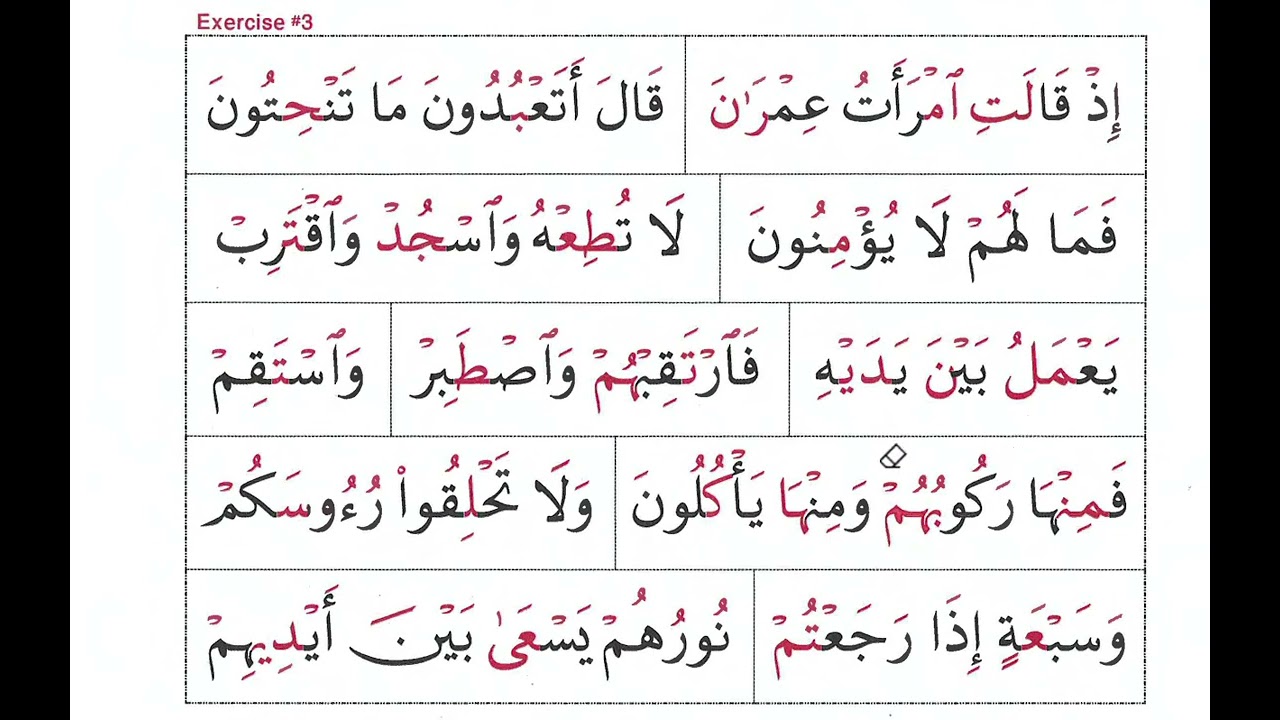 Exercise #3
إِذْ قَالَتِ ٱمْرَأَتُ عِمْرَٰنَ قَالَ أَتَعْبُدُونَ مَا تَنْحِتُونَ
فَمَا لَهُمْ لَا يُؤْمِنُونَ لَا تُطِعْهُ وَٱسْجُدْ وَٱقْتَرِبْ
يَعْمَلُ بَيْنَ يَدَيْهِ فَٱرْتَقِبْهُمْ وَٱصْطَبِرْ وَٱسْتَقِمْ
فَمِنْهَا رَكُوبُهُمْ وَمِنْهَا يَأْكُلُونَ وَلَا تَحْلِقُوا۟ رُءُوسَكُمْ
وَسَبْعَةٍ إِذَا رَجَعْتُمْ نُورُهُمْ يَسْعَىٰ بَيْنَ أَيْدِيهِمْ